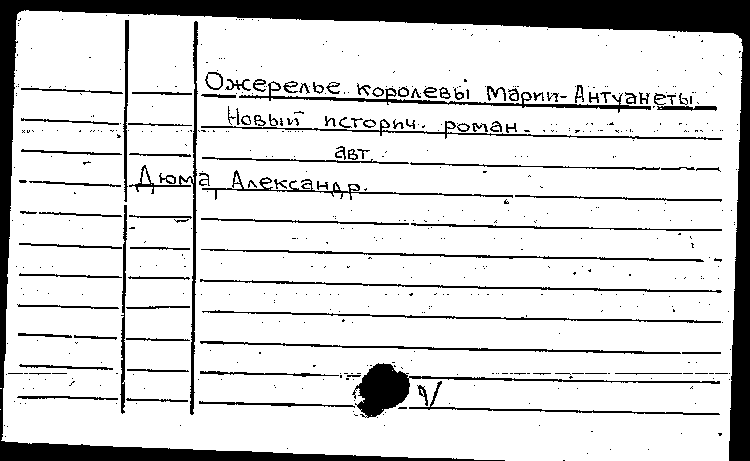 Ожерелье королевы Марии-Антуанеты.
Новый историч. роман.
авт.
Дюма, Александр.